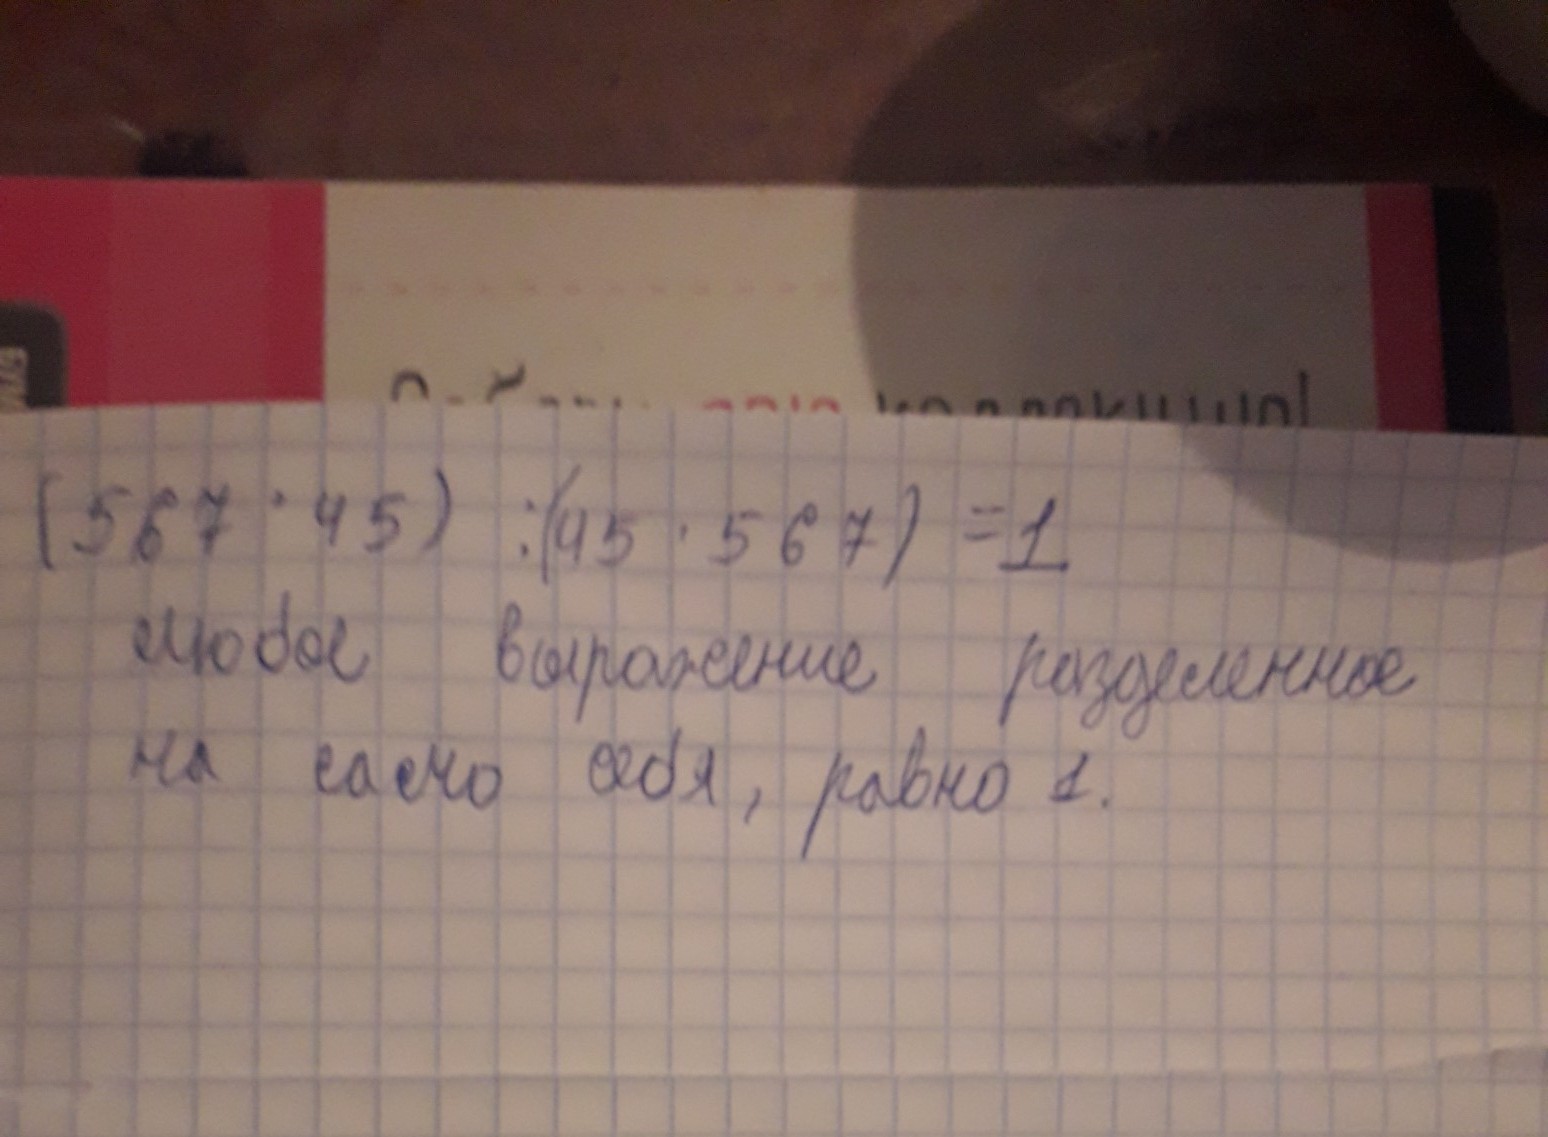 (567 · 45) :(45 · 567) =1
любое выражение разделенное
на само себя, равно 1.